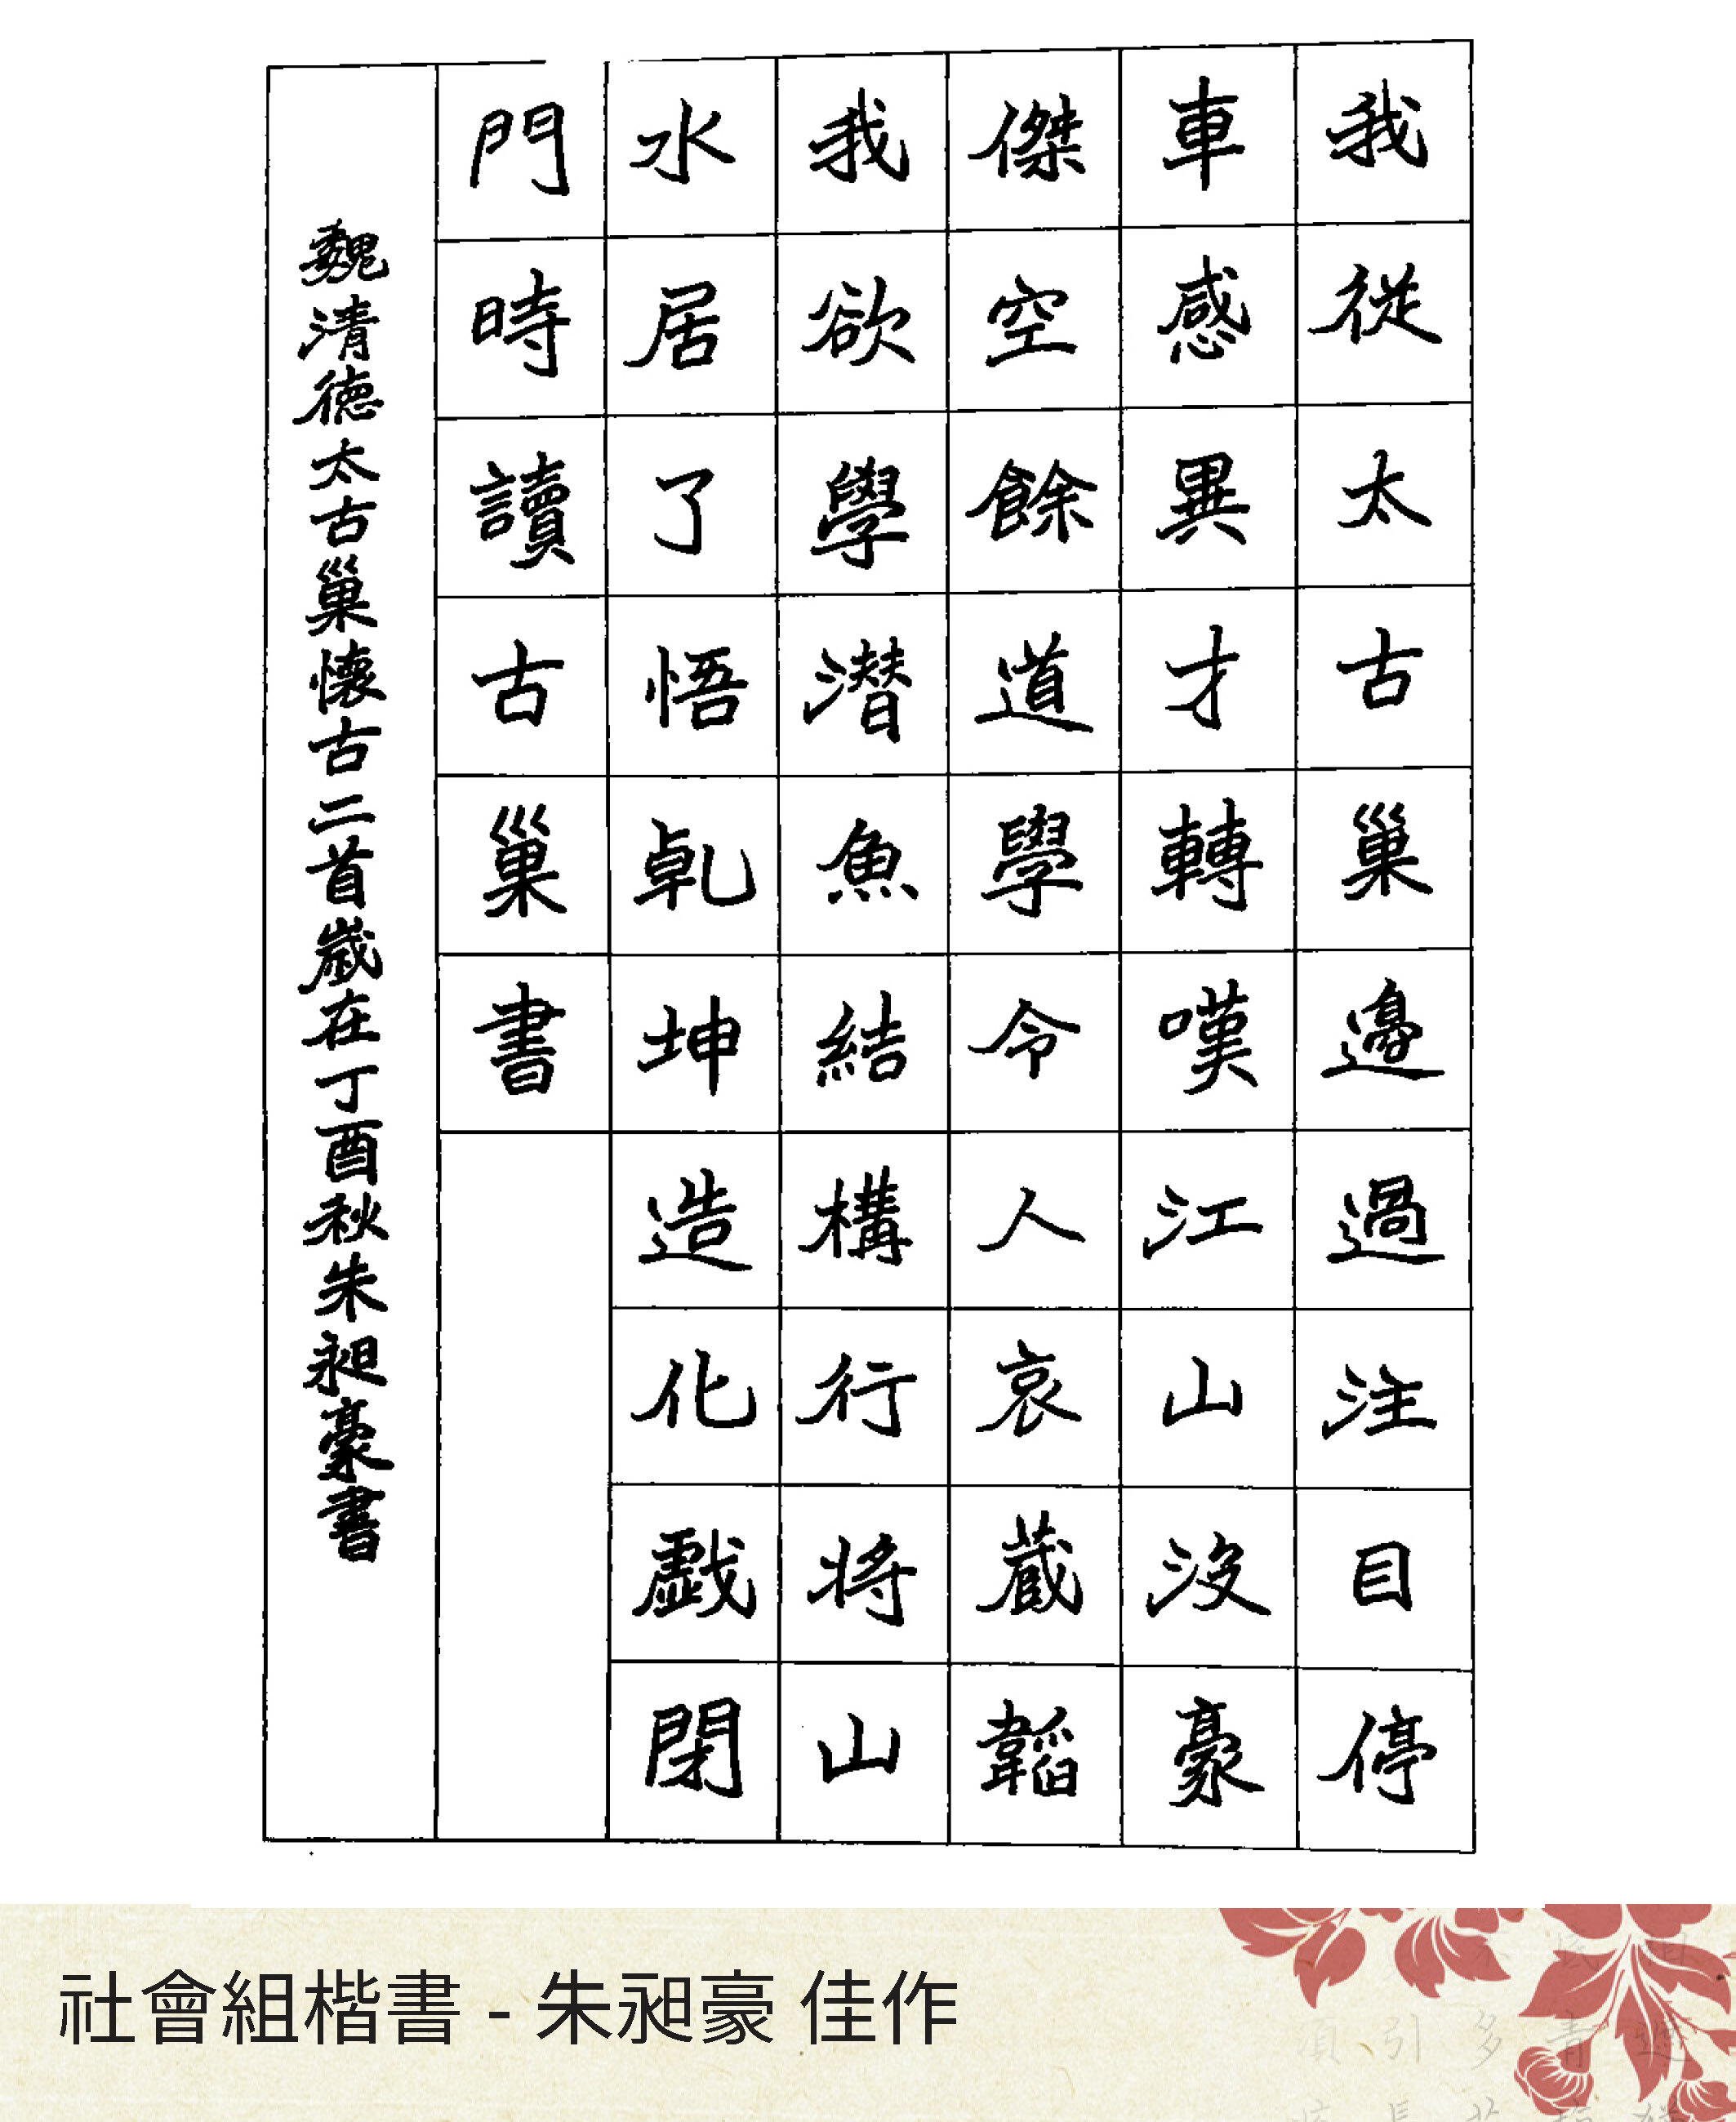 我從太古巢邊過注目停
車感異才轉嘆江山沒豪
傑空餘道學令人哀藏韜
我欲學潛魚結構行將山
水居了悟乾坤造化戲閉
門時讀古巢書
魏清德太古巢懷古二首歲在丁酉秋朱昶豪書
社會組楷書 - 朱昶豪 佳作